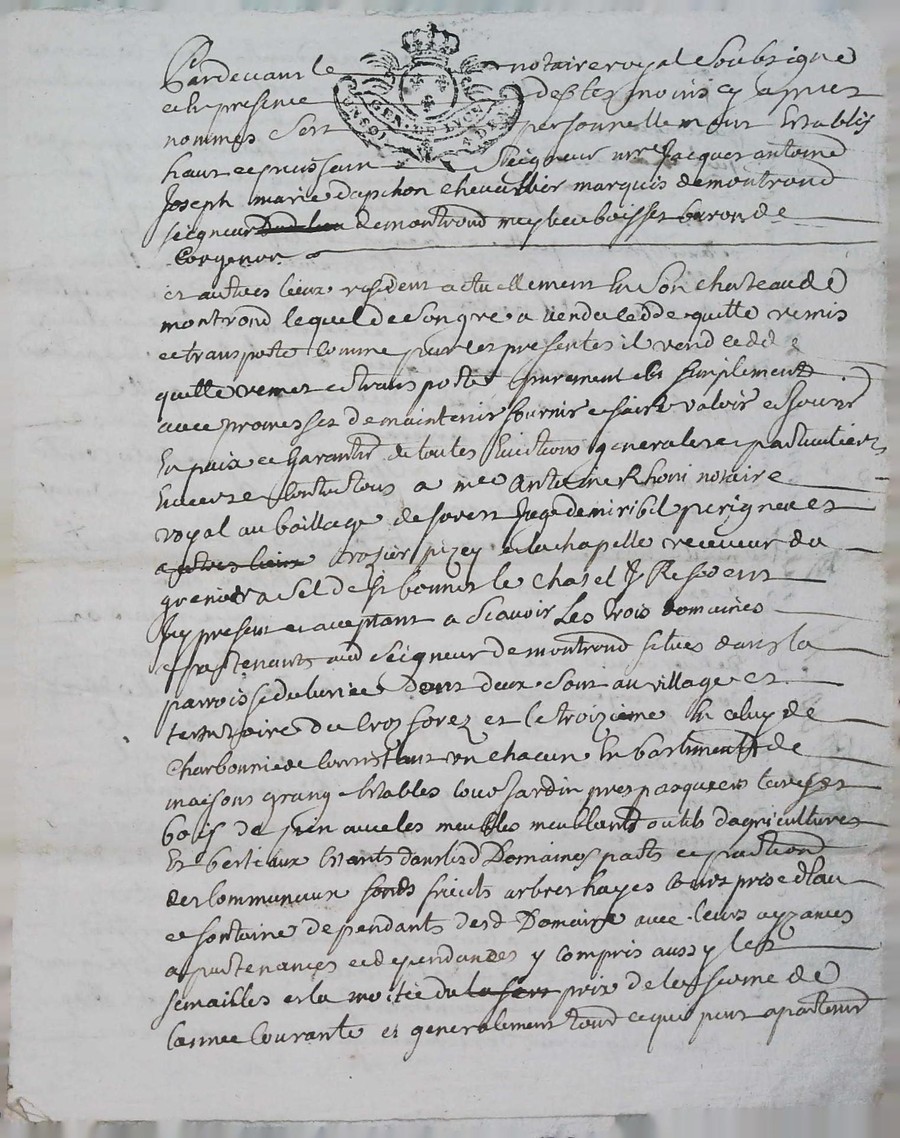 Pardevant le notaire royal Soubsigné
et en presence des tesmoins cy apres
nommes Sest personnellement Establis
haut et puissant Seigneur mre Jacques antoine
Joseph marie dapchon chevallier marquis de montrond
seigneur de montrond meylieu boisset baron de
Corgenon
et autres lieux resident actuellement En Son chateau de
montrond lequel de Son gre a vendu cedde quitte remis
et transporte comme par les presentes il vend cedde
quitte remet et transporte purement et Simplement
avec promesses de maintenir fournir et faire valoir et jouir
En paix et Garantir de toutes Evictions generales et particulieres
Envers et Contre tous a me Antoine Rhoni notaire
royal au baillage de forest Juge de miribel perigneu et
autres lieux Rozier pizey et la chapelle receveur du
grenier a Sel de St bonnet le chatel y Resident
Icy present et acceptant a Scavoir Les trois domaines
apartenants aud Seigneur de montrond situes dans la
parroisse de luriec Dont deux Sont au village et
territoire du Cros forez et le troizieme En celuy de
Charbonniere Consistant un chacun En bastiments de
maisons grange Estables cour Jardin pres paquiers terres et
bois de pin avec les meubles meublants outils dagricultures
Et bestiaux Estants dans lesd Domaines parts et portions
des Communaux fonds fruits arbres hayes Cours prise deau
et fontaine dependants desd Domaine avec leurs ayzances
apartenances et dependances y compris aussy les
semailles et la moitie du prix de la ferme de
lannee Courante et generalement tout ce qui peut apartenir
GEN. DE LYON
UN SOL